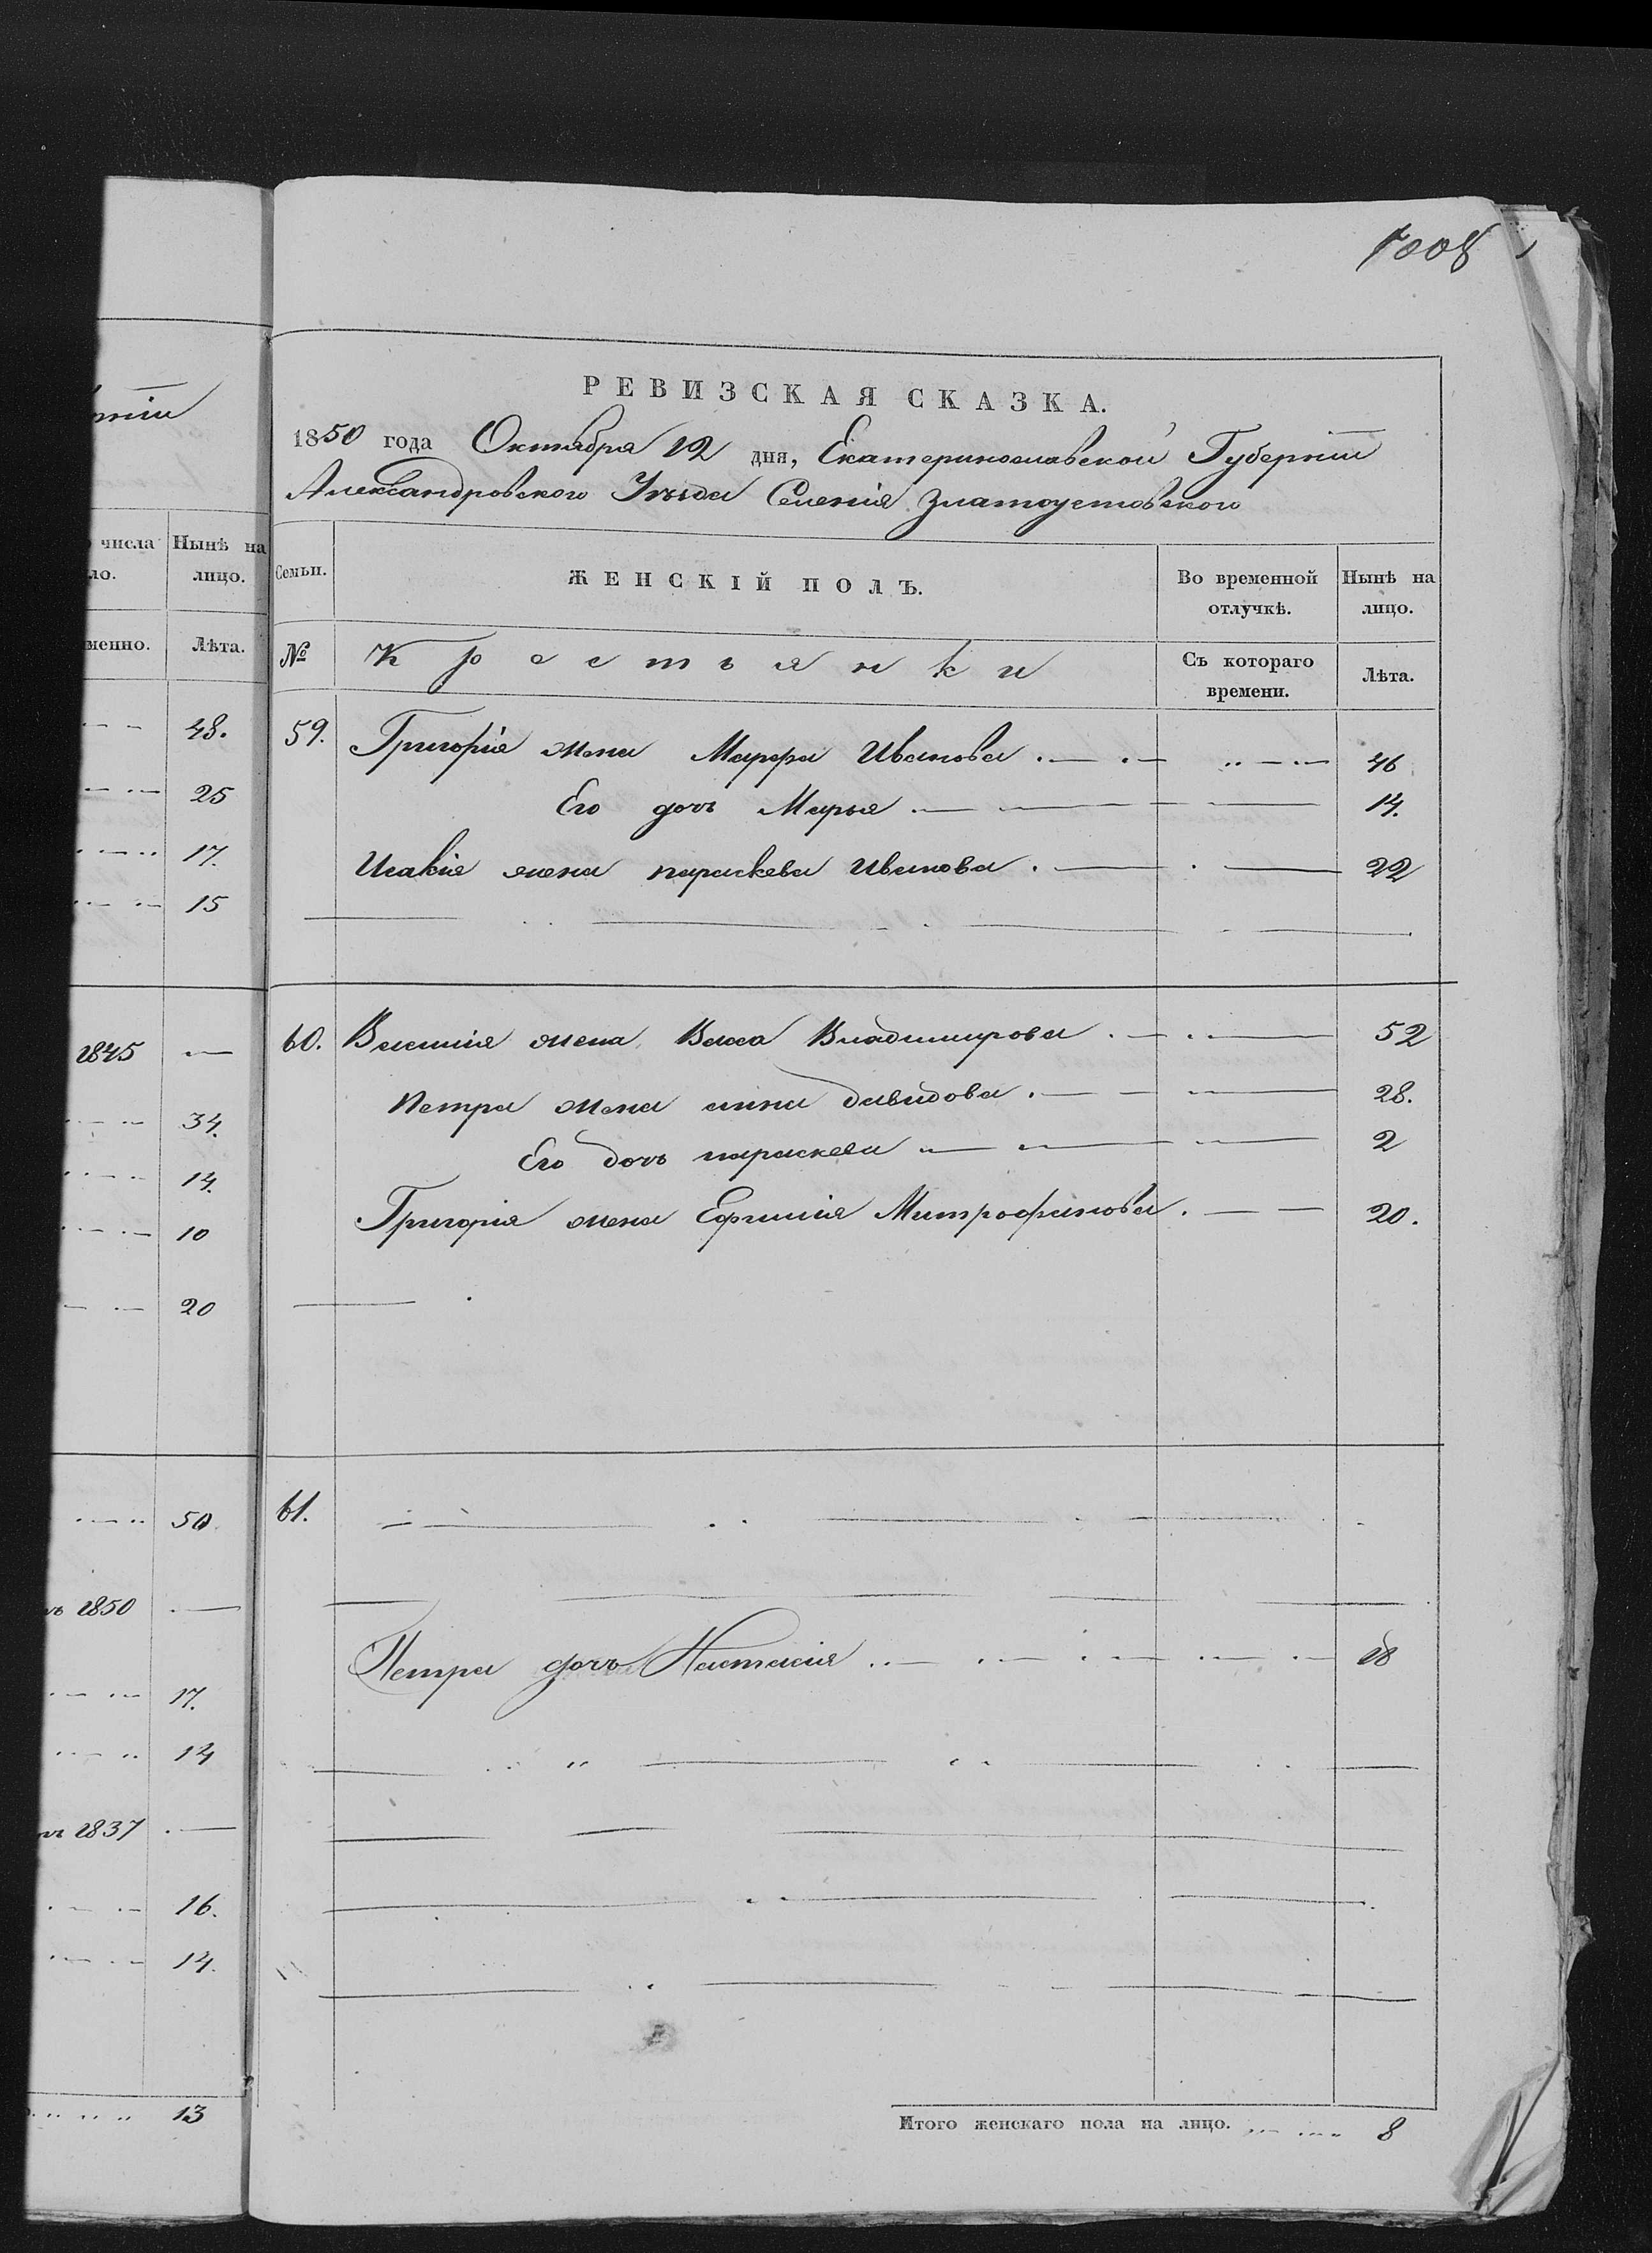 1008
РЕВИЗСКАЯ СКАЗКА.
1850 года Октября 12 дня, Екатеринославской Губерніи
Александровского Уѣзда Селенія Златоустовского
числа
ло.
Нынѣ на
лицо.
Семьи.
ЖЕНСКІЙ ПОЛЪ.
Во временной
отлучкѣ.
Нынѣ на
лицо.
менно.
Лѣта.
№
Крестьянки
Съ котораго
времени.
Лѣта.
48.
59. Григорія жена Марфа Иванова 46
25
Его дочь Марья 14.
17.
Исакія жена параскева Иванова 22
15
1845
60. Василія жена Васса Владимирова 52
34.
Петра жена анна давидова 28.
14.
Его дочь параскева 2
10
Григорія жена Ефимія Митрофанова 20.
20
50
61.
1850
17.
Петра дочь Настасія 18
14
1837
16.
14.
13
Итого женскаго пола на лицо. 8